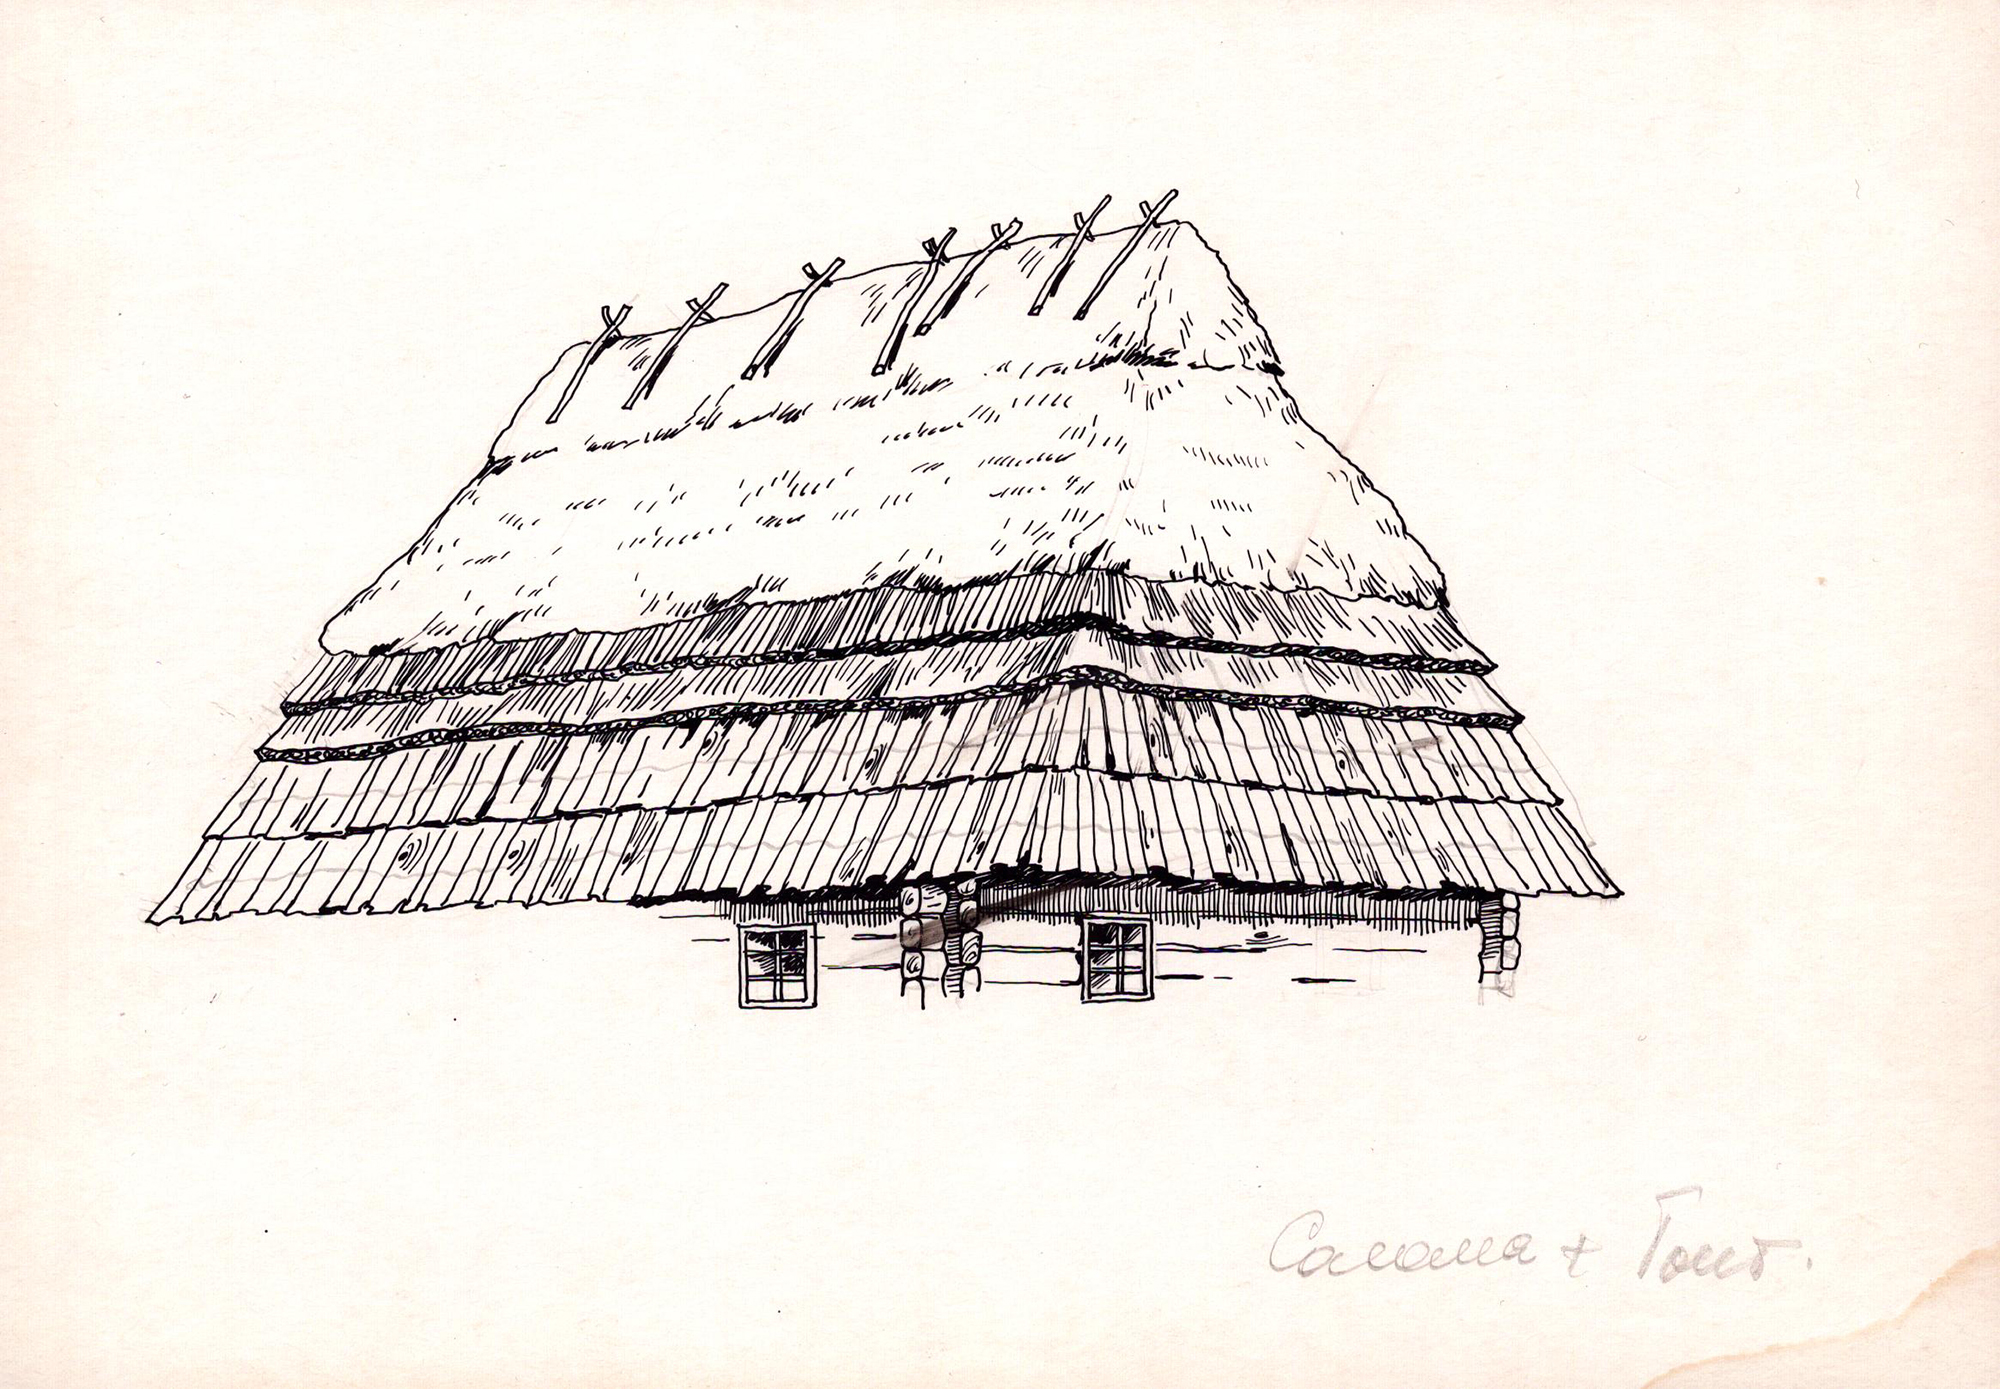 Салома + Гонт.